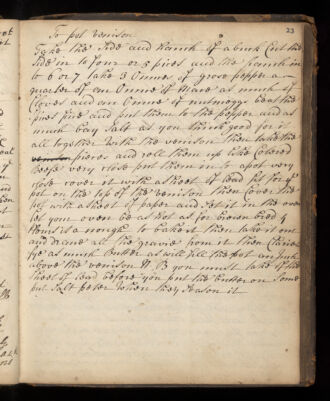 23
To pot venison
Take the side and Hanch of a buck Cut the
side in to four or 5 pices and the hanch in
to 6 or 7 take 3 Ounce of grose pepper a
quarter of an Ounce of Mace as much of
Cloves and an Ounce of nutmoggs beat the
spies fine and put them to the pepper and as
much bay salt as you think good for it
all together with the venison then take the
pieces and roll them up like Colored
Beefe very close put them in to a pot very
close cover it with a sheet of lead fit for ye
pot on the top of the venison then Cover the
pot with a sheet of paper and set it in the oven
let your oven be as hot as for brown bred 4
howrs is a nough to bake it then take it out
and draue all the gravie from it then Clarie
fye as much Butter as will fill the pot an inch
above the venison N B you must take of the
sheet of lead before you put the butter on some
put salt peter when they season it